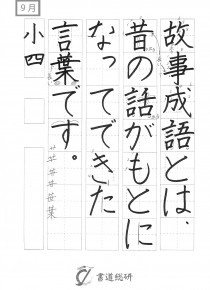 9月
故事成語とは、
昔の話がもとに
なってできた
言葉です。
小四
書道総研